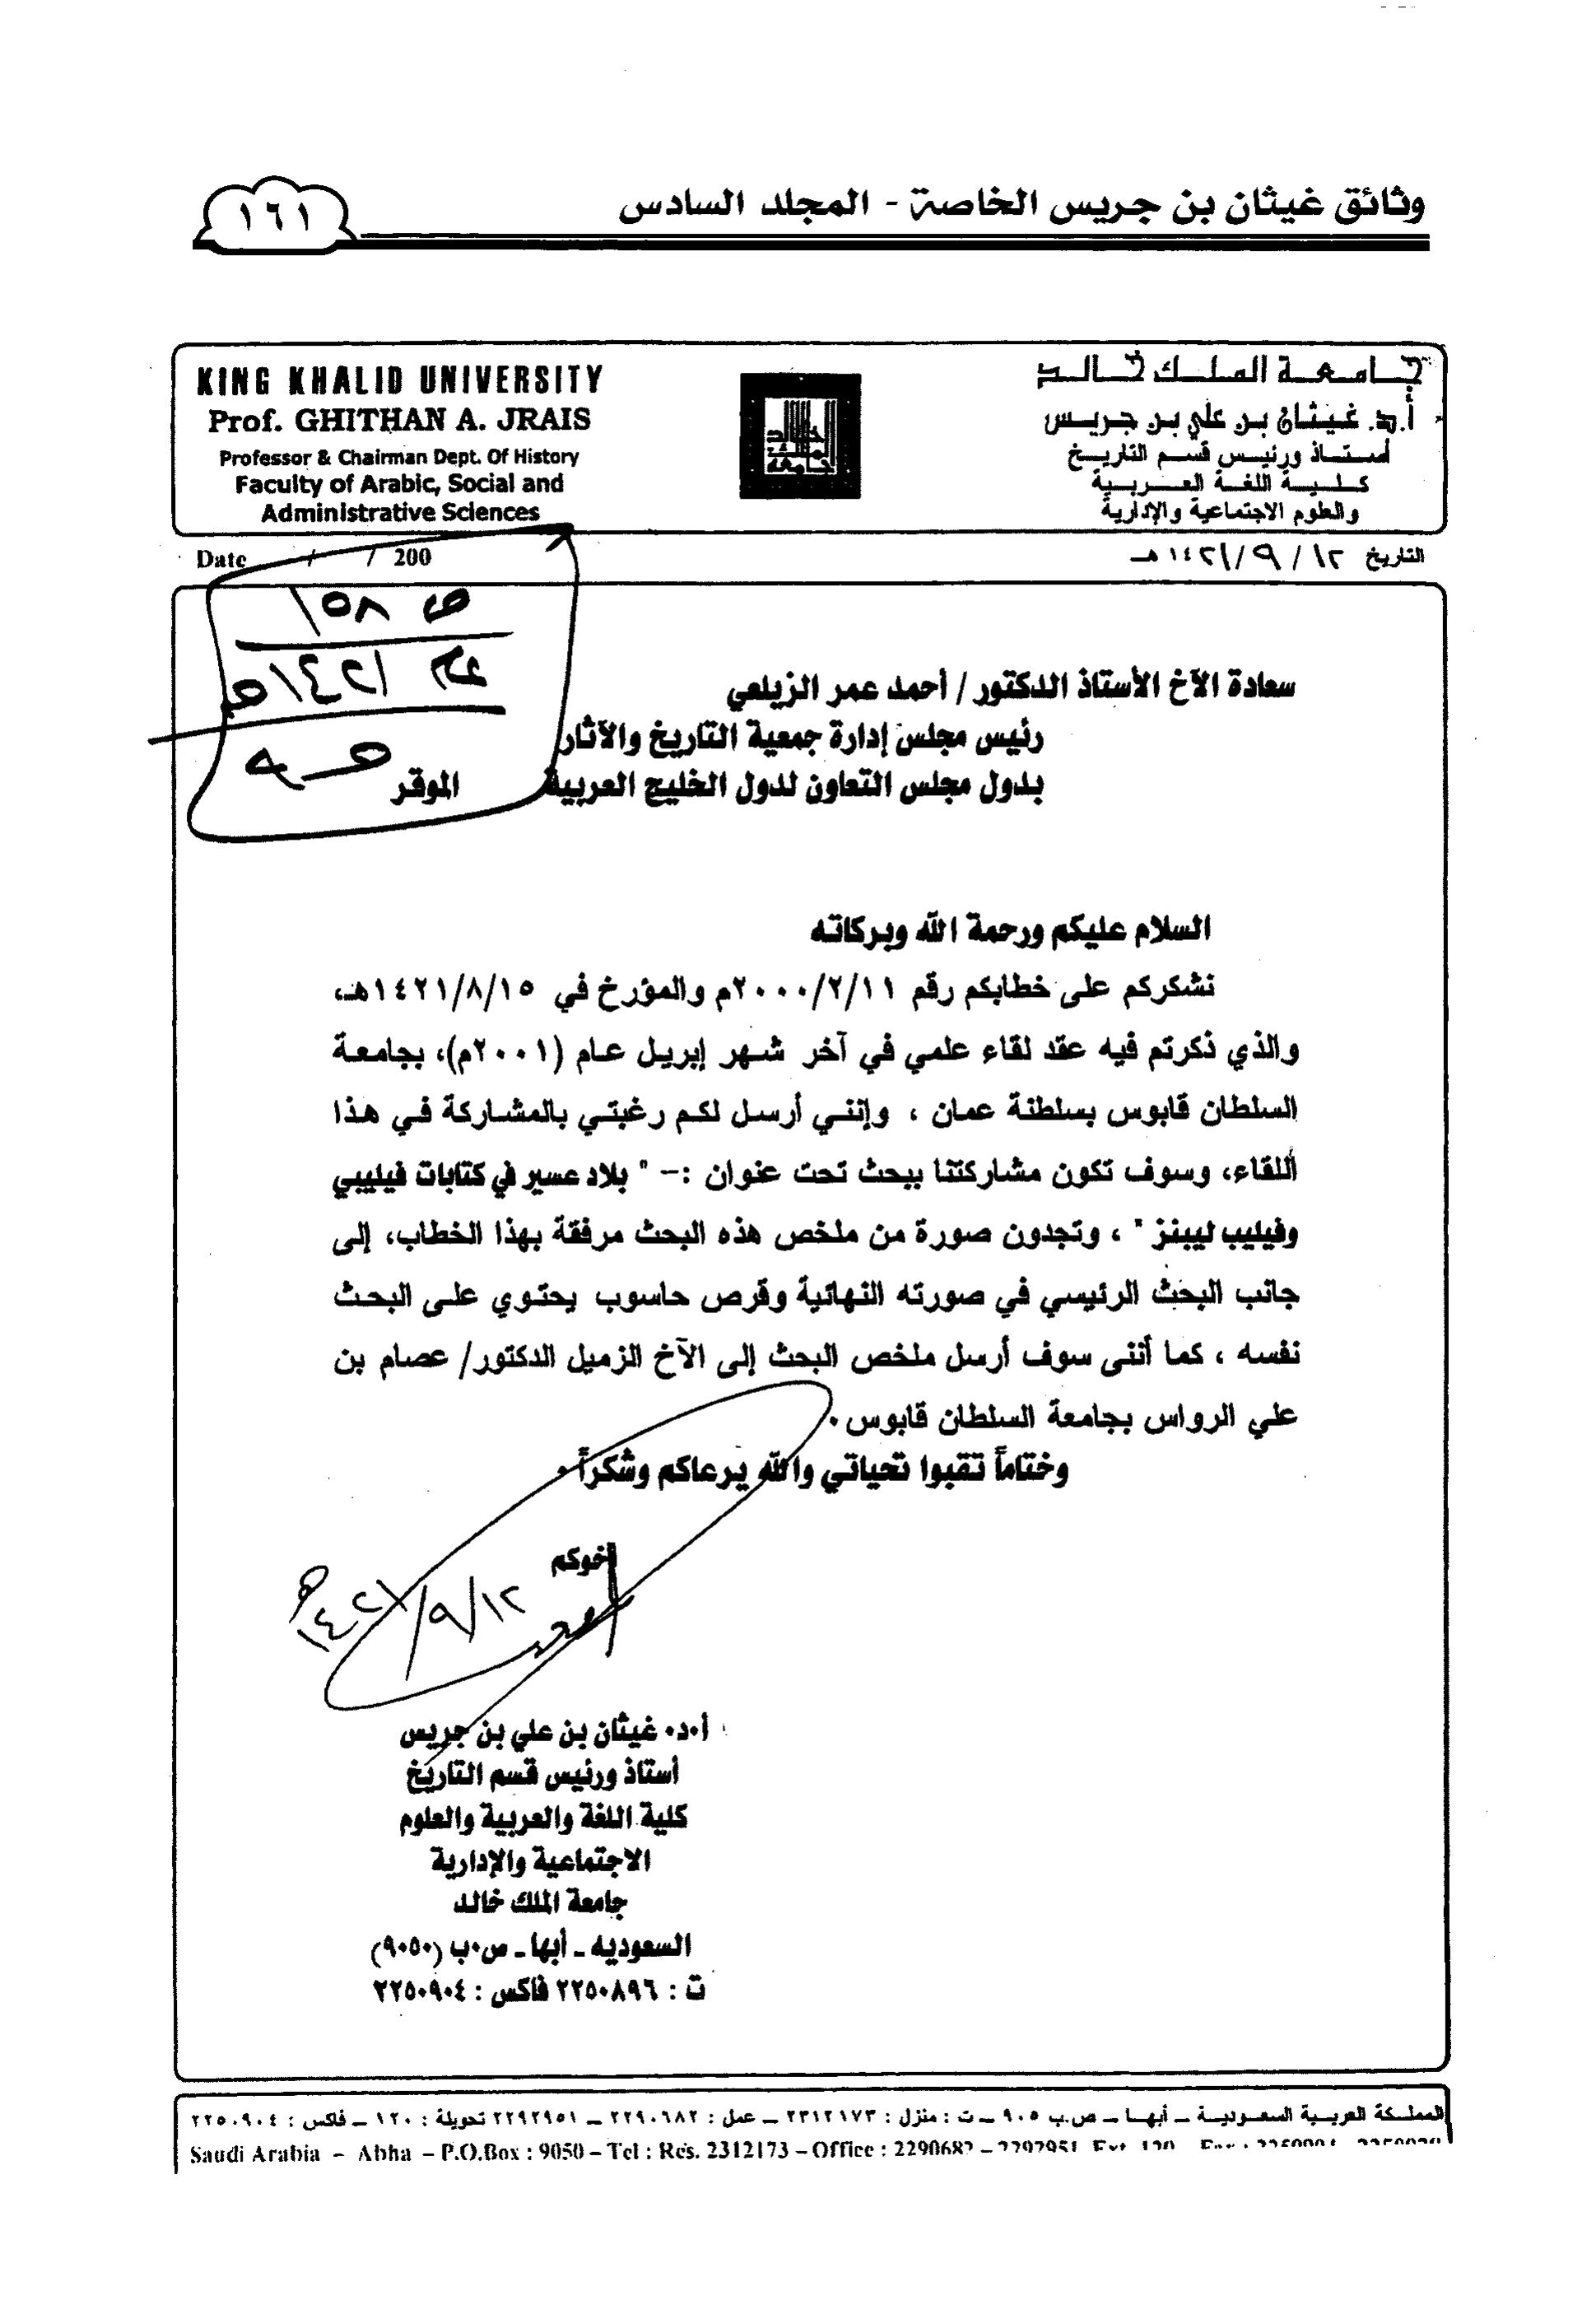 وثائق غيثان بن جريس الخاصة - المجلد السادس
١٦١
KING KHALID UNIVERSITY
Prof. GHITHAN A. JRAIS
Professor & Chairman Dept. Of History
Faculty of Arabic, Social and
Administrative Sciences
جامعة الملك خالد
جامعة الملك خالد
أ.د. غيثان بن علي بن جريس
أستاذ ورئيس قسم التاريخ
كلية اللغة العربية
والعلوم الاجتماعية والإدارية
Date / / 200
التاريخ ١٢ / ٩ / ١٤٢١ هـ
ص ١٥٨
عام ١٤٢١هـ
سعادة الآخ الأستاذ الدكتور / أحمد عمر الزيلعي
رئيس مجلس إدارة جمعية التاريخ والآثار
بدول مجلس التعاون لدول الخليج العربية الموقر
السلام عليكم ورحمة الله وبركاته
نشكركم على خطابكم رقم ٢٠٠٠/٢/١١م والمؤرخ في ١٤٢١/٨/١٥هـ،
والذي ذكرتم فيه عقد لقاء علمي في آخر شهر إبريل عام (٢٠٠١م)، بجامعة
السلطان قابوس بسلطنة عمان ، وإنني أرسل لكم رغبتي بالمشاركة في هذا
اللقاء، وسوف تكون مشاركتنا ببحث تحت عنوان :- " بلاد عسير في كتابات فيليبي
وفيليب ليبنز " ، وتجدون صورة من ملخص هذه البحث مرفقة بهذا الخطاب، إلى
جانب البحث الرئيسي في صورته النهائية وقرص حاسوب يحتوي على البحث
نفسه ، كما أننى سوف أرسل ملخص البحث إلى الآخ الزميل الدكتور/ عصام بن
علي الرواس بجامعة السلطان قابوس.
وختاماً تقبوا تحياتي والله يرعاكم وشكراً.
أخوكم
١٢/٩/١٤٢١هـ
أ.د. غيثان بن علي بن جريس
أستاذ ورئيس قسم التاريخ
كلية اللغة والعربية والعلوم
الاجتماعية والإدارية
جامعة الملك خالد
السعوديه ـ أبها ـ ص.ب (٩٠٥٠)
ت : ٢٢٥٠٨٩٦ فاكس : ٢٢٥٠٩٠٤
المملكة العربية السعودية ـ أبها ـ ص.ب ٩٠٥ ـ ت : منزل : ٢٣١٢١٧٣ ـ عمل : ٢٢٩٠٦٨٢ ـ ٢٢٩٢٩٥١ تحويلة : ١٢٠ ـ فاكس : ٢٢٥٠٩٠٤
Saudi Arabia – Abha – P.O.Box : 9050 – Tel : Res. 2312173 – Office : 2290682 – 2292951